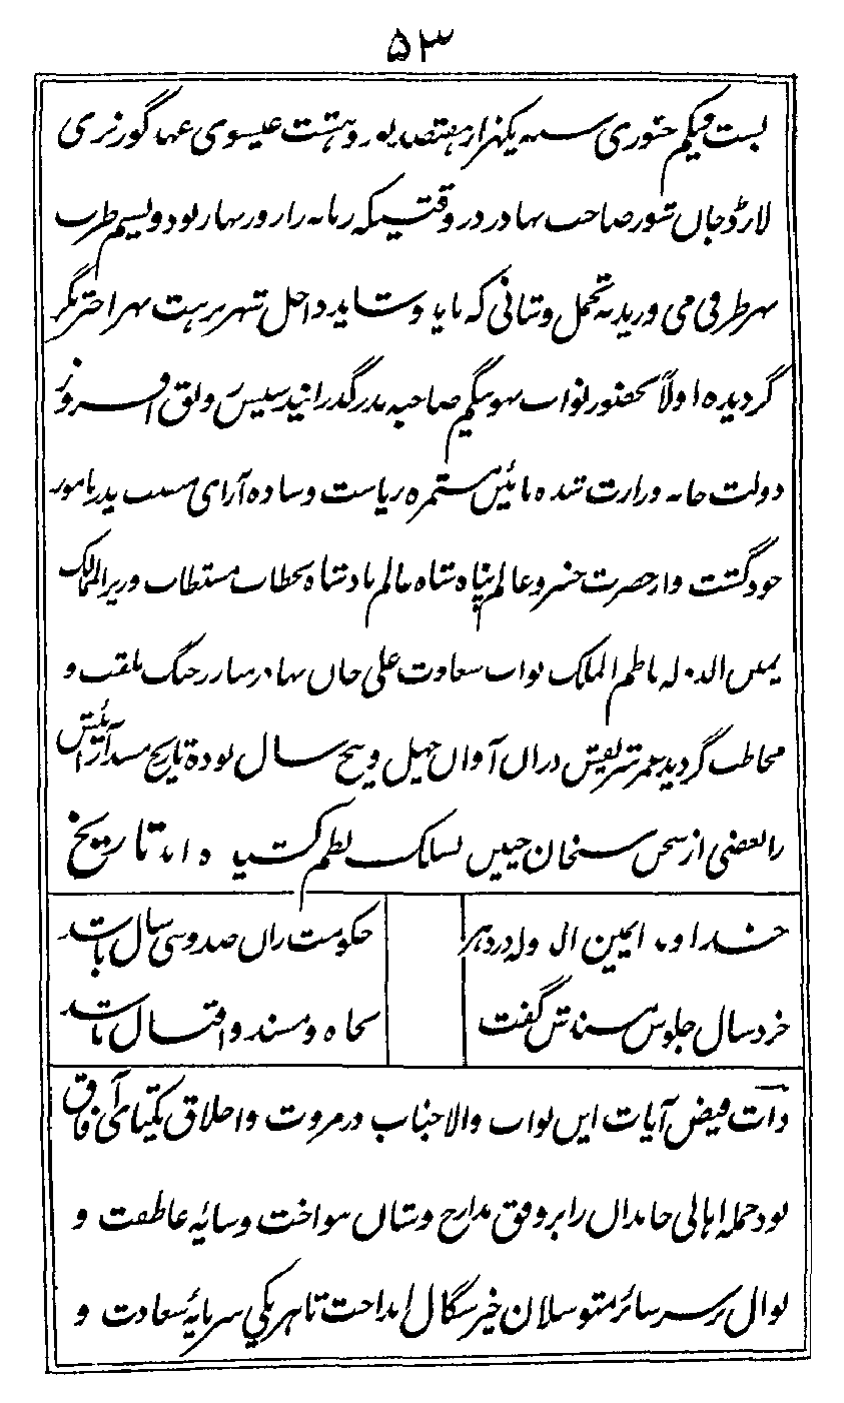 ۵۳
بست ویکم جنوری سنه یکهزار هفتصد نود و هشت عیسوی عهد گورنری
لارڈ جان شور صاحب بهادر در وقتیکه زمانه را روز بهار بود و نسیم طرب
بهر طرف می وزید به تجمل و شانی که باید و شاید داخل شهر بزهت بهر اختر نگر
گردیده اولاً بحضور نواب بهو بیگم صاحبه نذر گذرانید سپس رونق افروز
دولت خانه وزارت شده بائین مستمره ریاست وساده آرای مسند پدر نامور
خود گشت و از حضرت خسرو عالم پناه شاه عالم بادشاه بخطاب مستطاب وزیر الممالک
یمین الدوله ناظم الملک نواب سعادت علی خان بهادر مبارز جنگ ملقب و
مخاطب گردید عمر شریفش دران آوان چهل و پنج سال بوده تاریخ مسند آرائیش
را بعضی از سخن سنجان چنین بسلک نظم کشیده اند تاریخ
خداوند ایمین الدوله در دهر
حکومت ران صد و سی سال باشد
خرد سال جلوس مسندش گفت
بجاه و مسند و اقبال باشد
ذات فیض آیات این نواب والا جناب در مروت و اخلاق یکتای آفاق
بود جمله اهالی خاندان را بر وفق مدارج و شان نواخت و سایۀ عاطفت و
نوال بر سر سائر متوسلان خیر سگال انداخت تا هر یکی سرمایۀ سعادت و